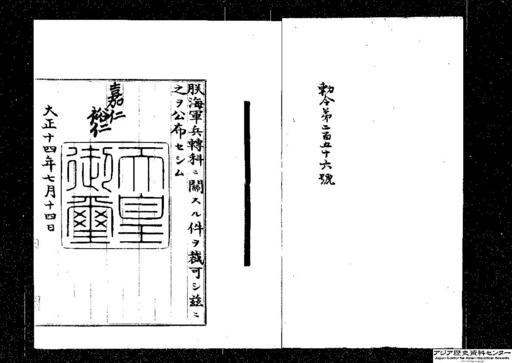 勅令第二百五十六號
朕海軍兵轉科ニ關スル件ヲ裁可シ茲ニ
之ヲ公布セシム
嘉仁
裕仁
天皇
御璽
大正十四年七月十四日
アジア歴史資料センター
Japan Center for Asian Historical Records